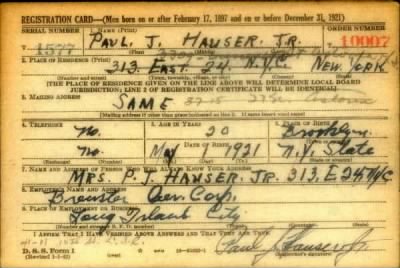 REGISTRATION CARD—(Men born on or after February 17, 1897 and on or before December 31, 1921)
SERIAL NUMBER 1. NAME (Print) ORDER NUMBER
1577 PAUL J. HAUSER, JR. 10007
2. PLACE OF RESIDENCE (Print)
313 EAST 24. N.Y.C. NEW YORK
(Number and street) (Town, township, village, or city) (County) (State)
[THE PLACE OF RESIDENCE GIVEN ON THE LINE ABOVE WILL DETERMINE LOCAL BOARD
JURISDICTION; LINE 2 OF REGISTRATION CERTIFICATE WILL BE IDENTICAL]
3. MAILING ADDRESS
SAME
[Mailing address if other than place indicated on line 2. If same insert word same]
4. TELEPHONE 5. AGE IN YEARS 6. PLACE OF BIRTH
No. 20 Brooklyn
DATE OF BIRTH (Town or county)
No. May 1921 N.Y. State
(Exchange) (Number) (Mo.) (Day) (Yr.) (State or country)
7. NAME AND ADDRESS OF PERSON WHO WILL ALWAYS KNOW YOUR ADDRESS
MRS. P. J. HAUSER, JR. 313. E 24 NYC
8. EMPLOYER'S NAME AND ADDRESS
Brewster Aero Corp.
9. PLACE OF EMPLOYMENT OR BUSINESS
Long Island City
(Number and street or R. F. D. number) (Town) (County) (State)
I AFFIRM THAT I HAVE VERIFIED ABOVE ANSWERS AND THAT THEY ARE TRUE.
D. S. S. Form 1 Paul J Hauser Jr.